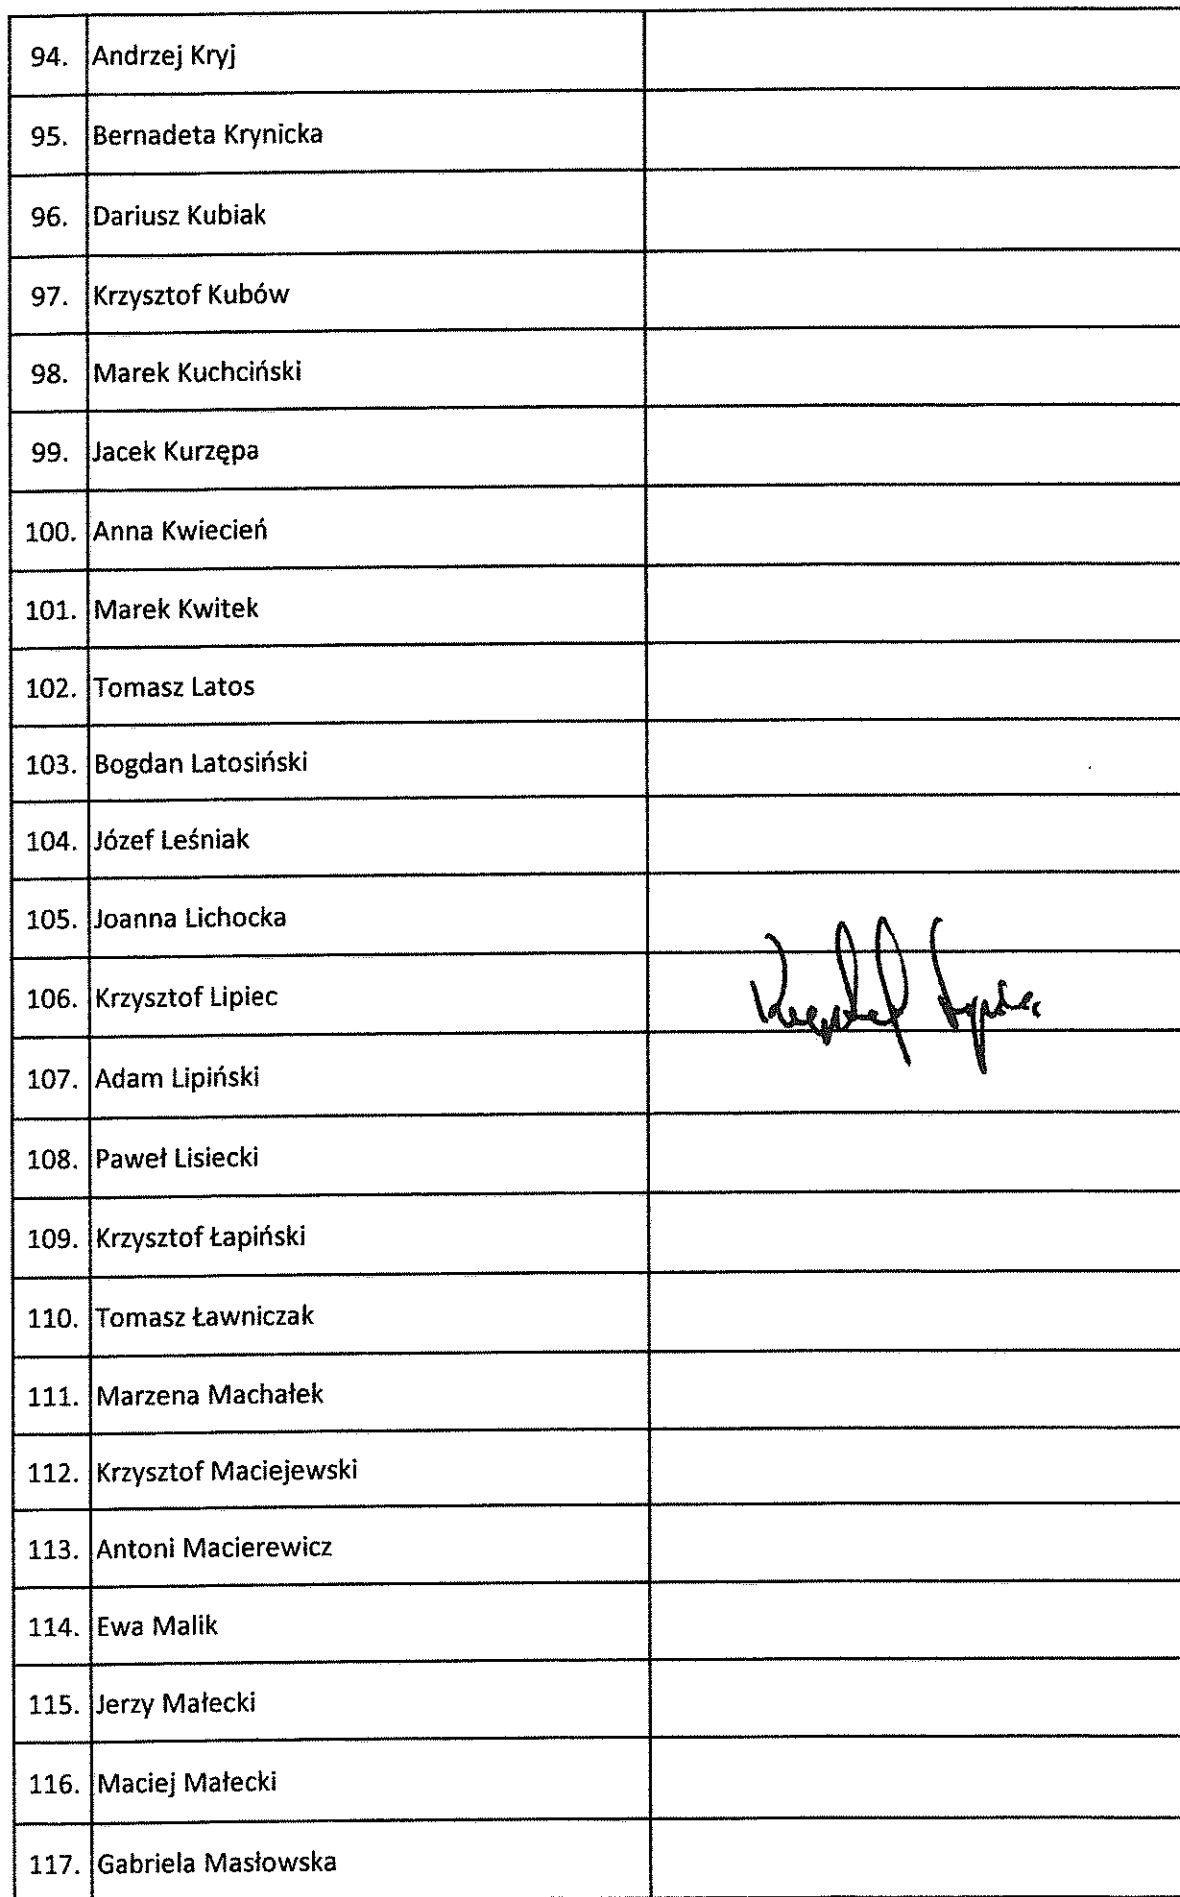 94. Andrzej Kryj
95. Bernadeta Krynicka
96. Dariusz Kubiak
97. Krzysztof Kubów
98. Marek Kuchciński
99. Jacek Kurzępa
100. Anna Kwiecień
101. Marek Kwitek
102. Tomasz Latos
103. Bogdan Latosiński
104. Józef Leśniak
105. Joanna Lichocka
106. Krzysztof Lipiec Krzysztof Lipiec
107. Adam Lipiński
108. Paweł Lisiecki
109. Krzysztof Łapiński
110. Tomasz Ławniczak
111. Marzena Machałek
112. Krzysztof Maciejewski
113. Antoni Macierewicz
114. Ewa Malik
115. Jerzy Małecki
116. Maciej Małecki
117. Gabriela Masłowska